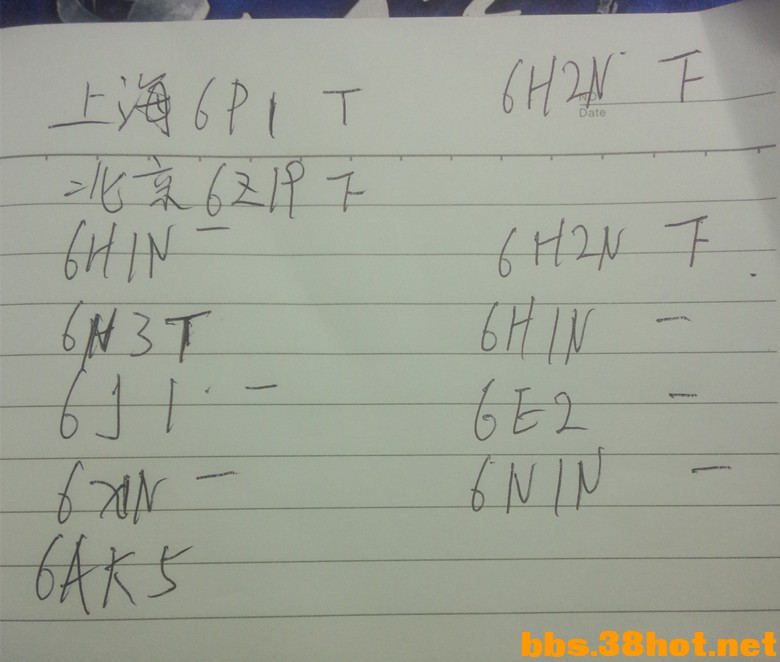 上海6P1 T 6H2N T
No
Date
北京6Z1P T
6H1N — 6H2N T
6N3 T 6H1N —
6J1 — 6E2 —
6X1N — 6N1N —
6AK5
bbs.38hot.net